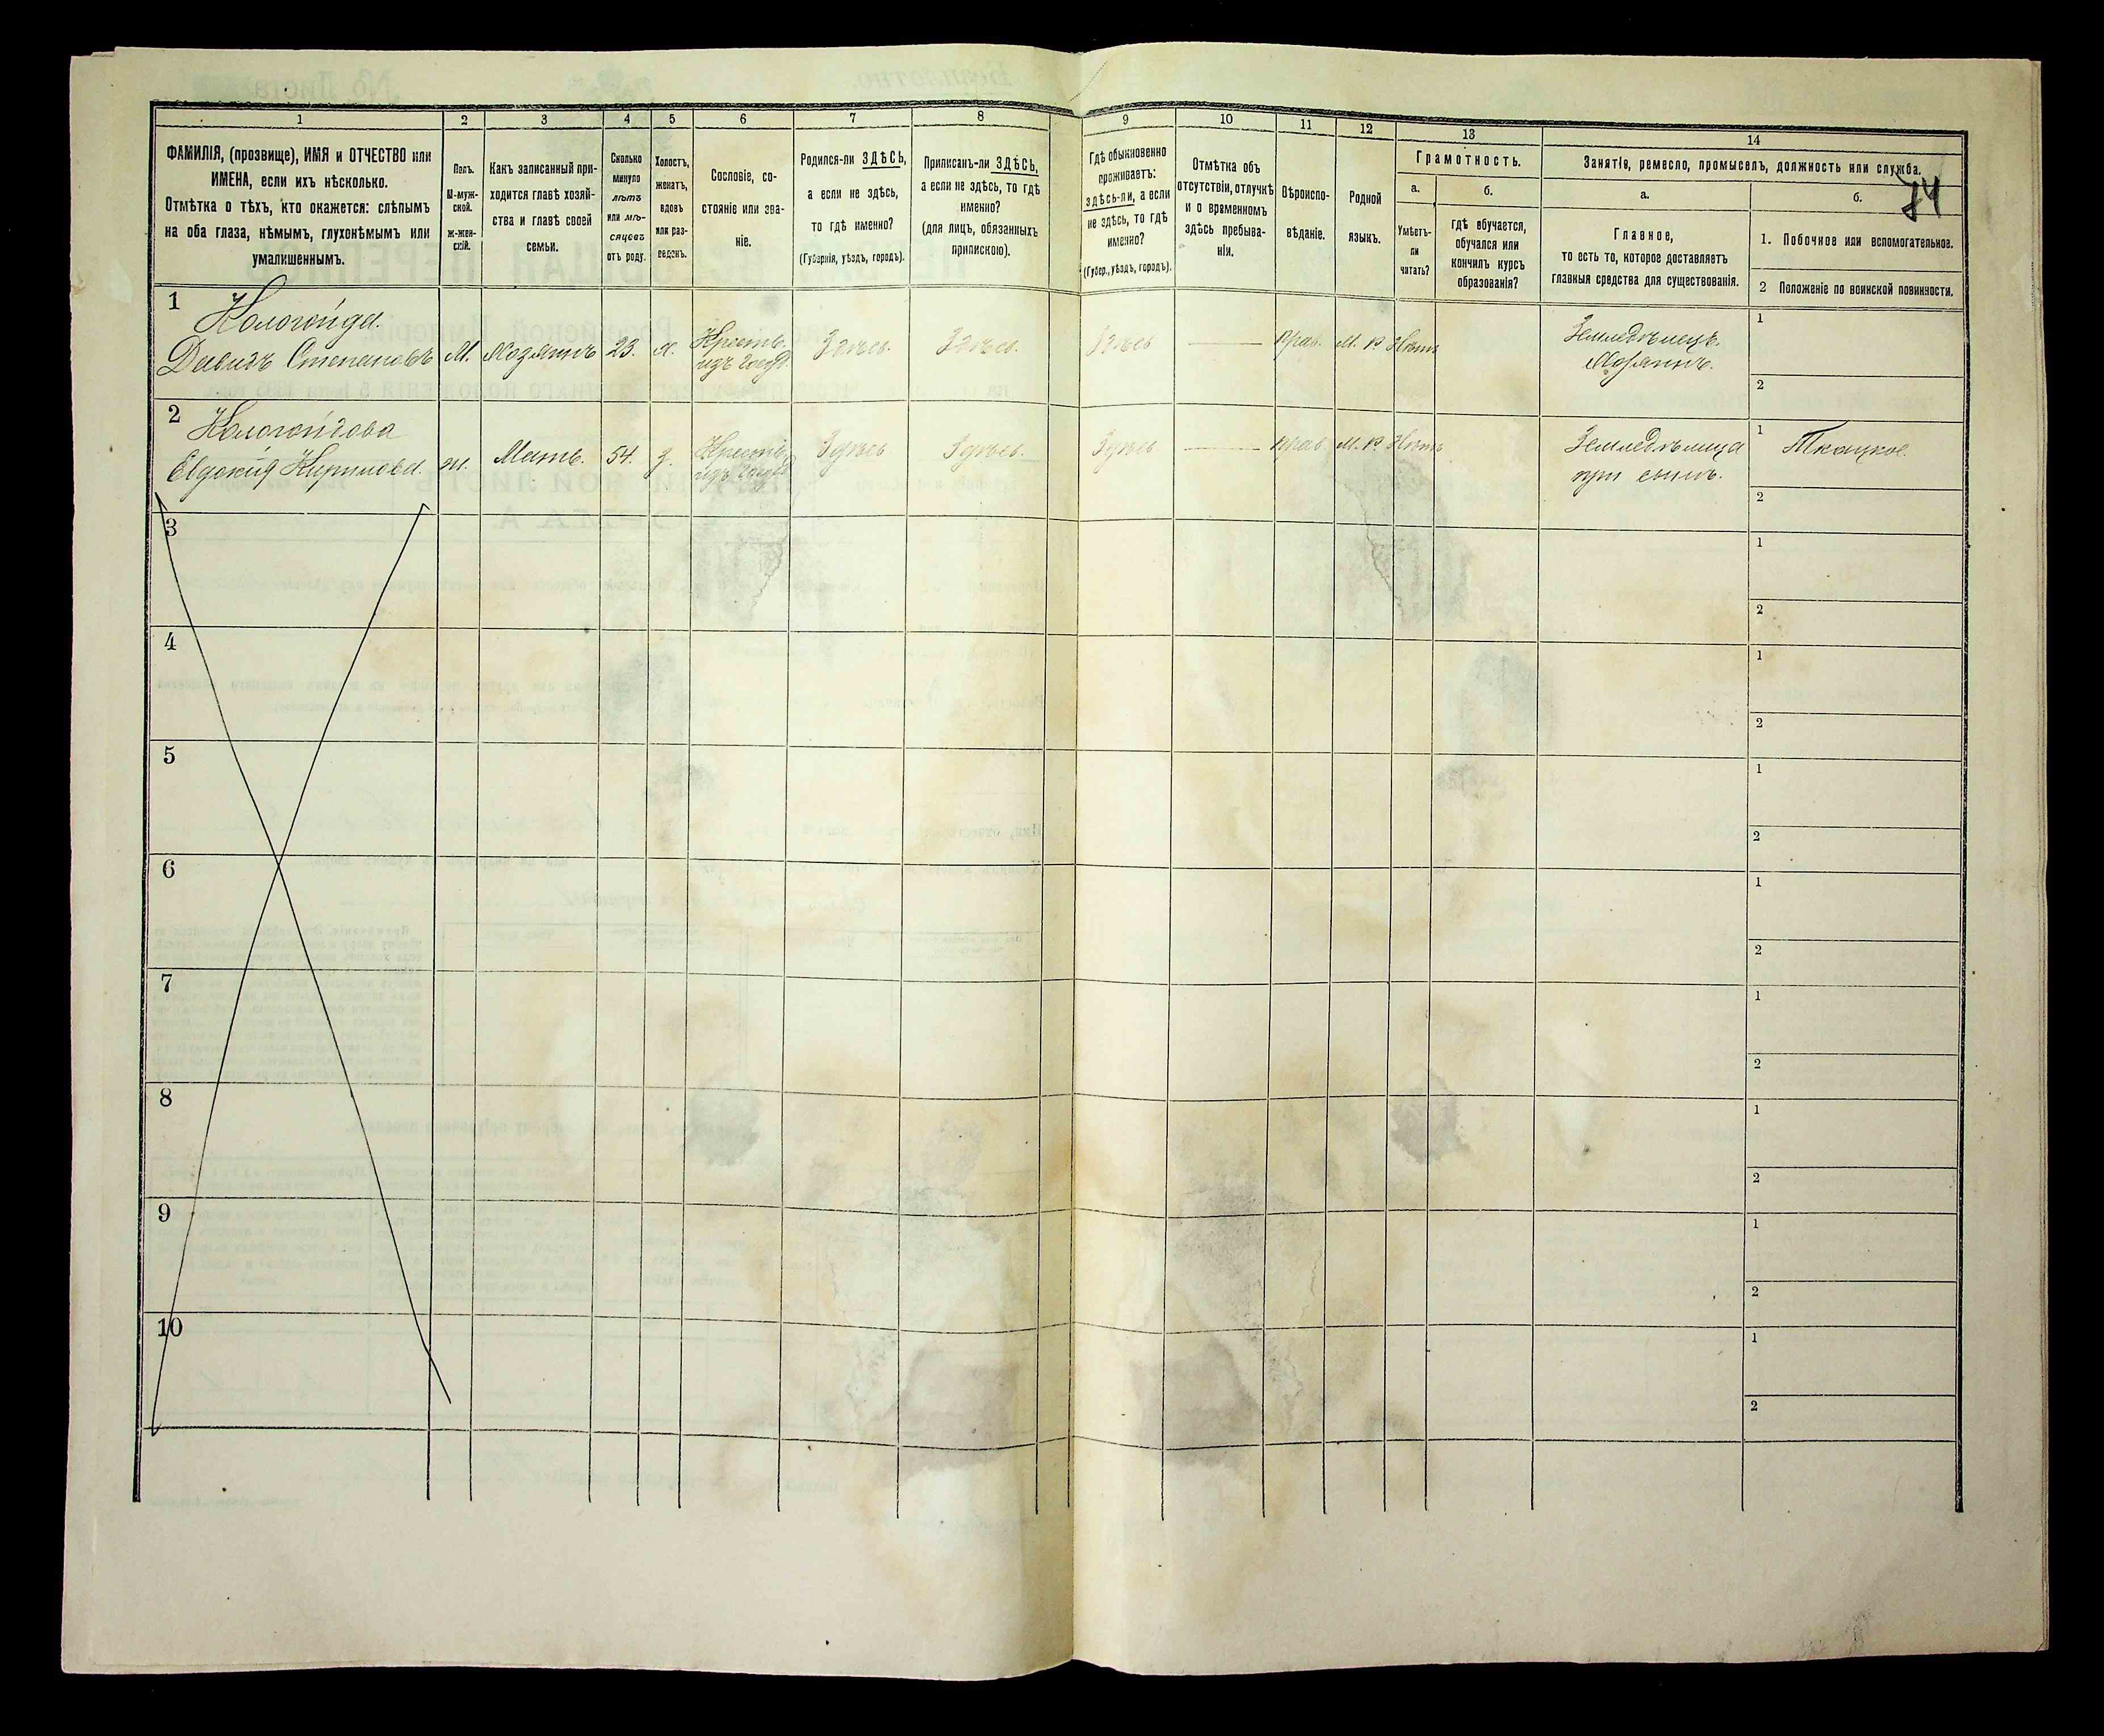 1 2 3 4 5 6 7 8 9 10 11 12 13 14
ФАМИЛІЯ, (прозвище), ИМЯ и ОТЧЕСТВО или
ИМЕНА, если ихъ нѣсколько.
Отмѣтка о тѣхъ, кто окажется: слѣпымъ
на оба глаза, нѣмымъ, глухонѣмымъ или
умалишеннымъ.
Полъ.
М-муж-
ской.
ж-жен-
скій.
Какъ записанный при-
ходится главѣ хозяй-
ства и главѣ своей
семьи.
Сколько
минуло
лѣтъ
или мѣ-
сяцевъ
отъ роду.
Холостъ,
женатъ,
вдовъ
или раз-
веденъ.
Сословіе, со-
стояніе или зва-
ніе.
Родился-ли ЗДѢСЬ,
а если не здѣсь,
то гдѣ именно?
(Губернія, уѣздъ, городъ).
Приписанъ-ли ЗДѢСЬ,
а если не здѣсь, то гдѣ
именно?
(для лицъ, обязанныхъ
припискою).
Гдѣ обыкновенно
проживаетъ:
здѣсь-ли, а если
не здѣсь, то гдѣ
именно?
(Губер., уѣздъ, городъ).
Отмѣтка объ
отсутствіи, отлучкѣ
и о временномъ
здѣсь пребыва-
ніи.
Вѣроиспо-
вѣданіе.
Родной
языкъ.
Грамотность.
а.
Умѣетъ-
ли
читать?
б.
гдѣ обучается,
обучался или
кончилъ курсъ
образованія?
Занятіе, ремесло, промыселъ, должность или служба.
74
а.
Главное,
то есть то, которое доставляетъ
главныя средства для существованія.
б.
1. Побочное или вспомогательное.
2 Положеніе по воинской повинности.
1 Давидъ Степановъ М. Хозяинъ 23. х. Крестъ. Здѣсь. Здѣсь. Здѣсь Прав. М. р. Нѣтъ Земледѣлецъ. 1
Хозяинъ.
2
2 Евдокія Кирилова. ж. Мать. 54. Крестъ. Здѣсь Здѣсь. Здѣсь Прав М. р. Нѣтъ Земледѣлица 1 Ткацкое.
при сынѣ. 2
3 1
2
4 1
2
5 1
2
6 1
2
7 1
2
8 1
2
9 1
2
10 1
2